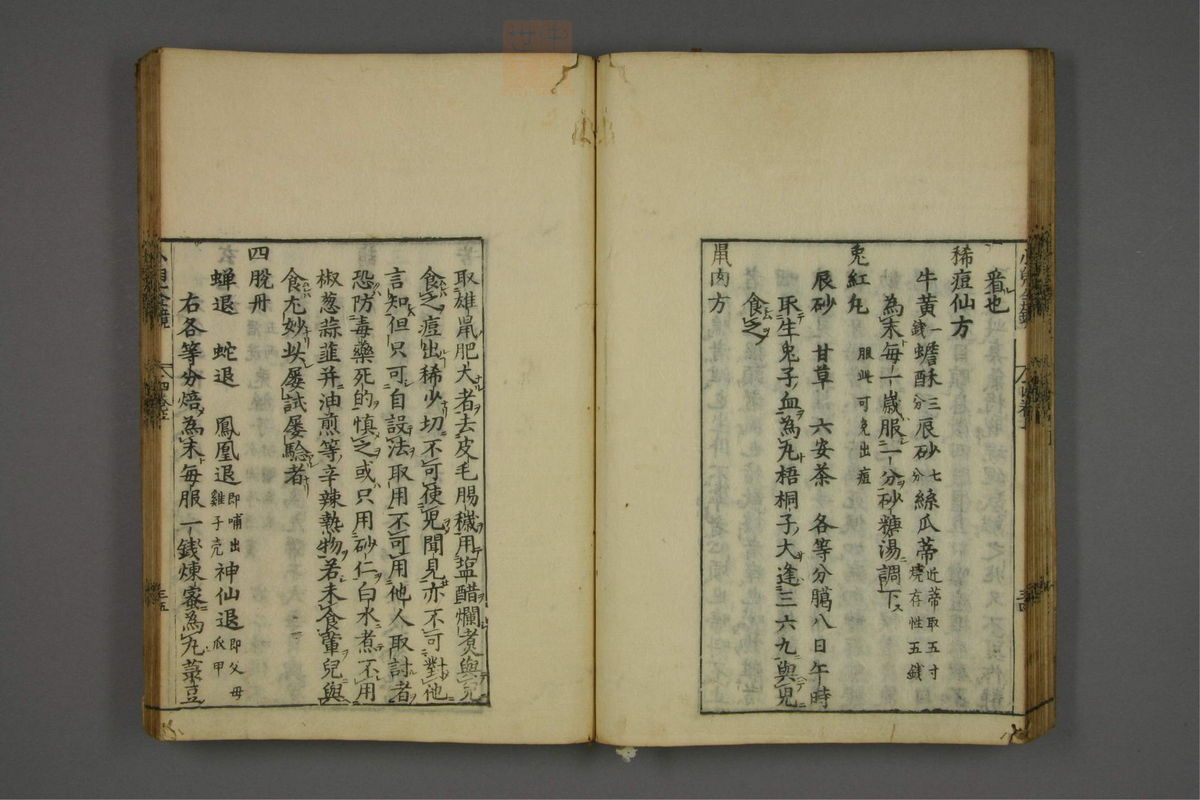 看也
稀痘仙方
牛黄一錢蟾酥三分辰砂七分絲瓜蒂近蒂取五寸燒存性五錢
為末每一歲服一分砂糖湯調下
兎紅丸 服此可免出痘
辰砂 甘草 六安茶 各等分臈八日午時
取生兎子血為丸梧桐子大逢三六九與児
食之
鼠肉方
取雄鼠肥大者去皮毛腸穢用塩醋爛煮與児
食之痘出稀少切不可使児聞見亦不可對他
言知但只可自設法取用不可用他人取討者
恐防毒藥死的慎之或只用砂仁白水煮不用
椒葱蒜韮并油煎等辛辣熱物若未食葷兒與
食尤妙此屡試屡驗者
四脫丹
蟬退 蛇退 鳳凰退即哺出雞子壳神仙退即父母爪甲
右各等分焙為末每服一錢煉蜜為丸菉豆